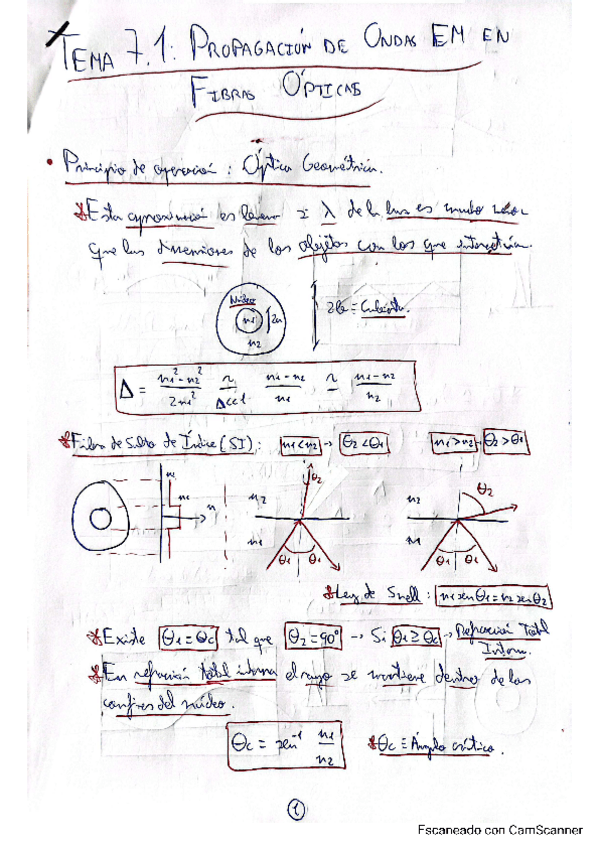 TEMA 7.1: PROPAGACIÓN DE ONDAS EM EN
FIBRAS ÓPTICAS
• Principio de operación: Óptica Geométrica.
Esta aproximación es buena si λ de la luz es mucho menor
que las dimensiones de los objetos con los que interactúa.
Núcleo
n1
2a
n2
2b ≡ Cubierta.
Δ = (n1² - n2²)/(2n1²) ≈ Δ<<1 (n1 - n2)/n1 ≈ (n1 - n2)/n2
Fibra de Salto de Índice (SI): n1<n2 → θ2<θ1 n1>n2 → θ2>θ1
n n1 n
n2 n1 θ2 θ1 θ1
n2 n1 θ2 θ1 θ1
Ley de Snell: n1 sen θ1 = n2 sen θ2
Existe θ1=θc tal que θ2=90° → Si θ1≥θc → Refracción Total
Intern.
En refracción total interna el rayo se mantiene dentro de los
confines del núcleo.
θc = sen⁻¹ n1/n2 θc ≡ Ángulo crítico.
1
Escaneado con CamScanner